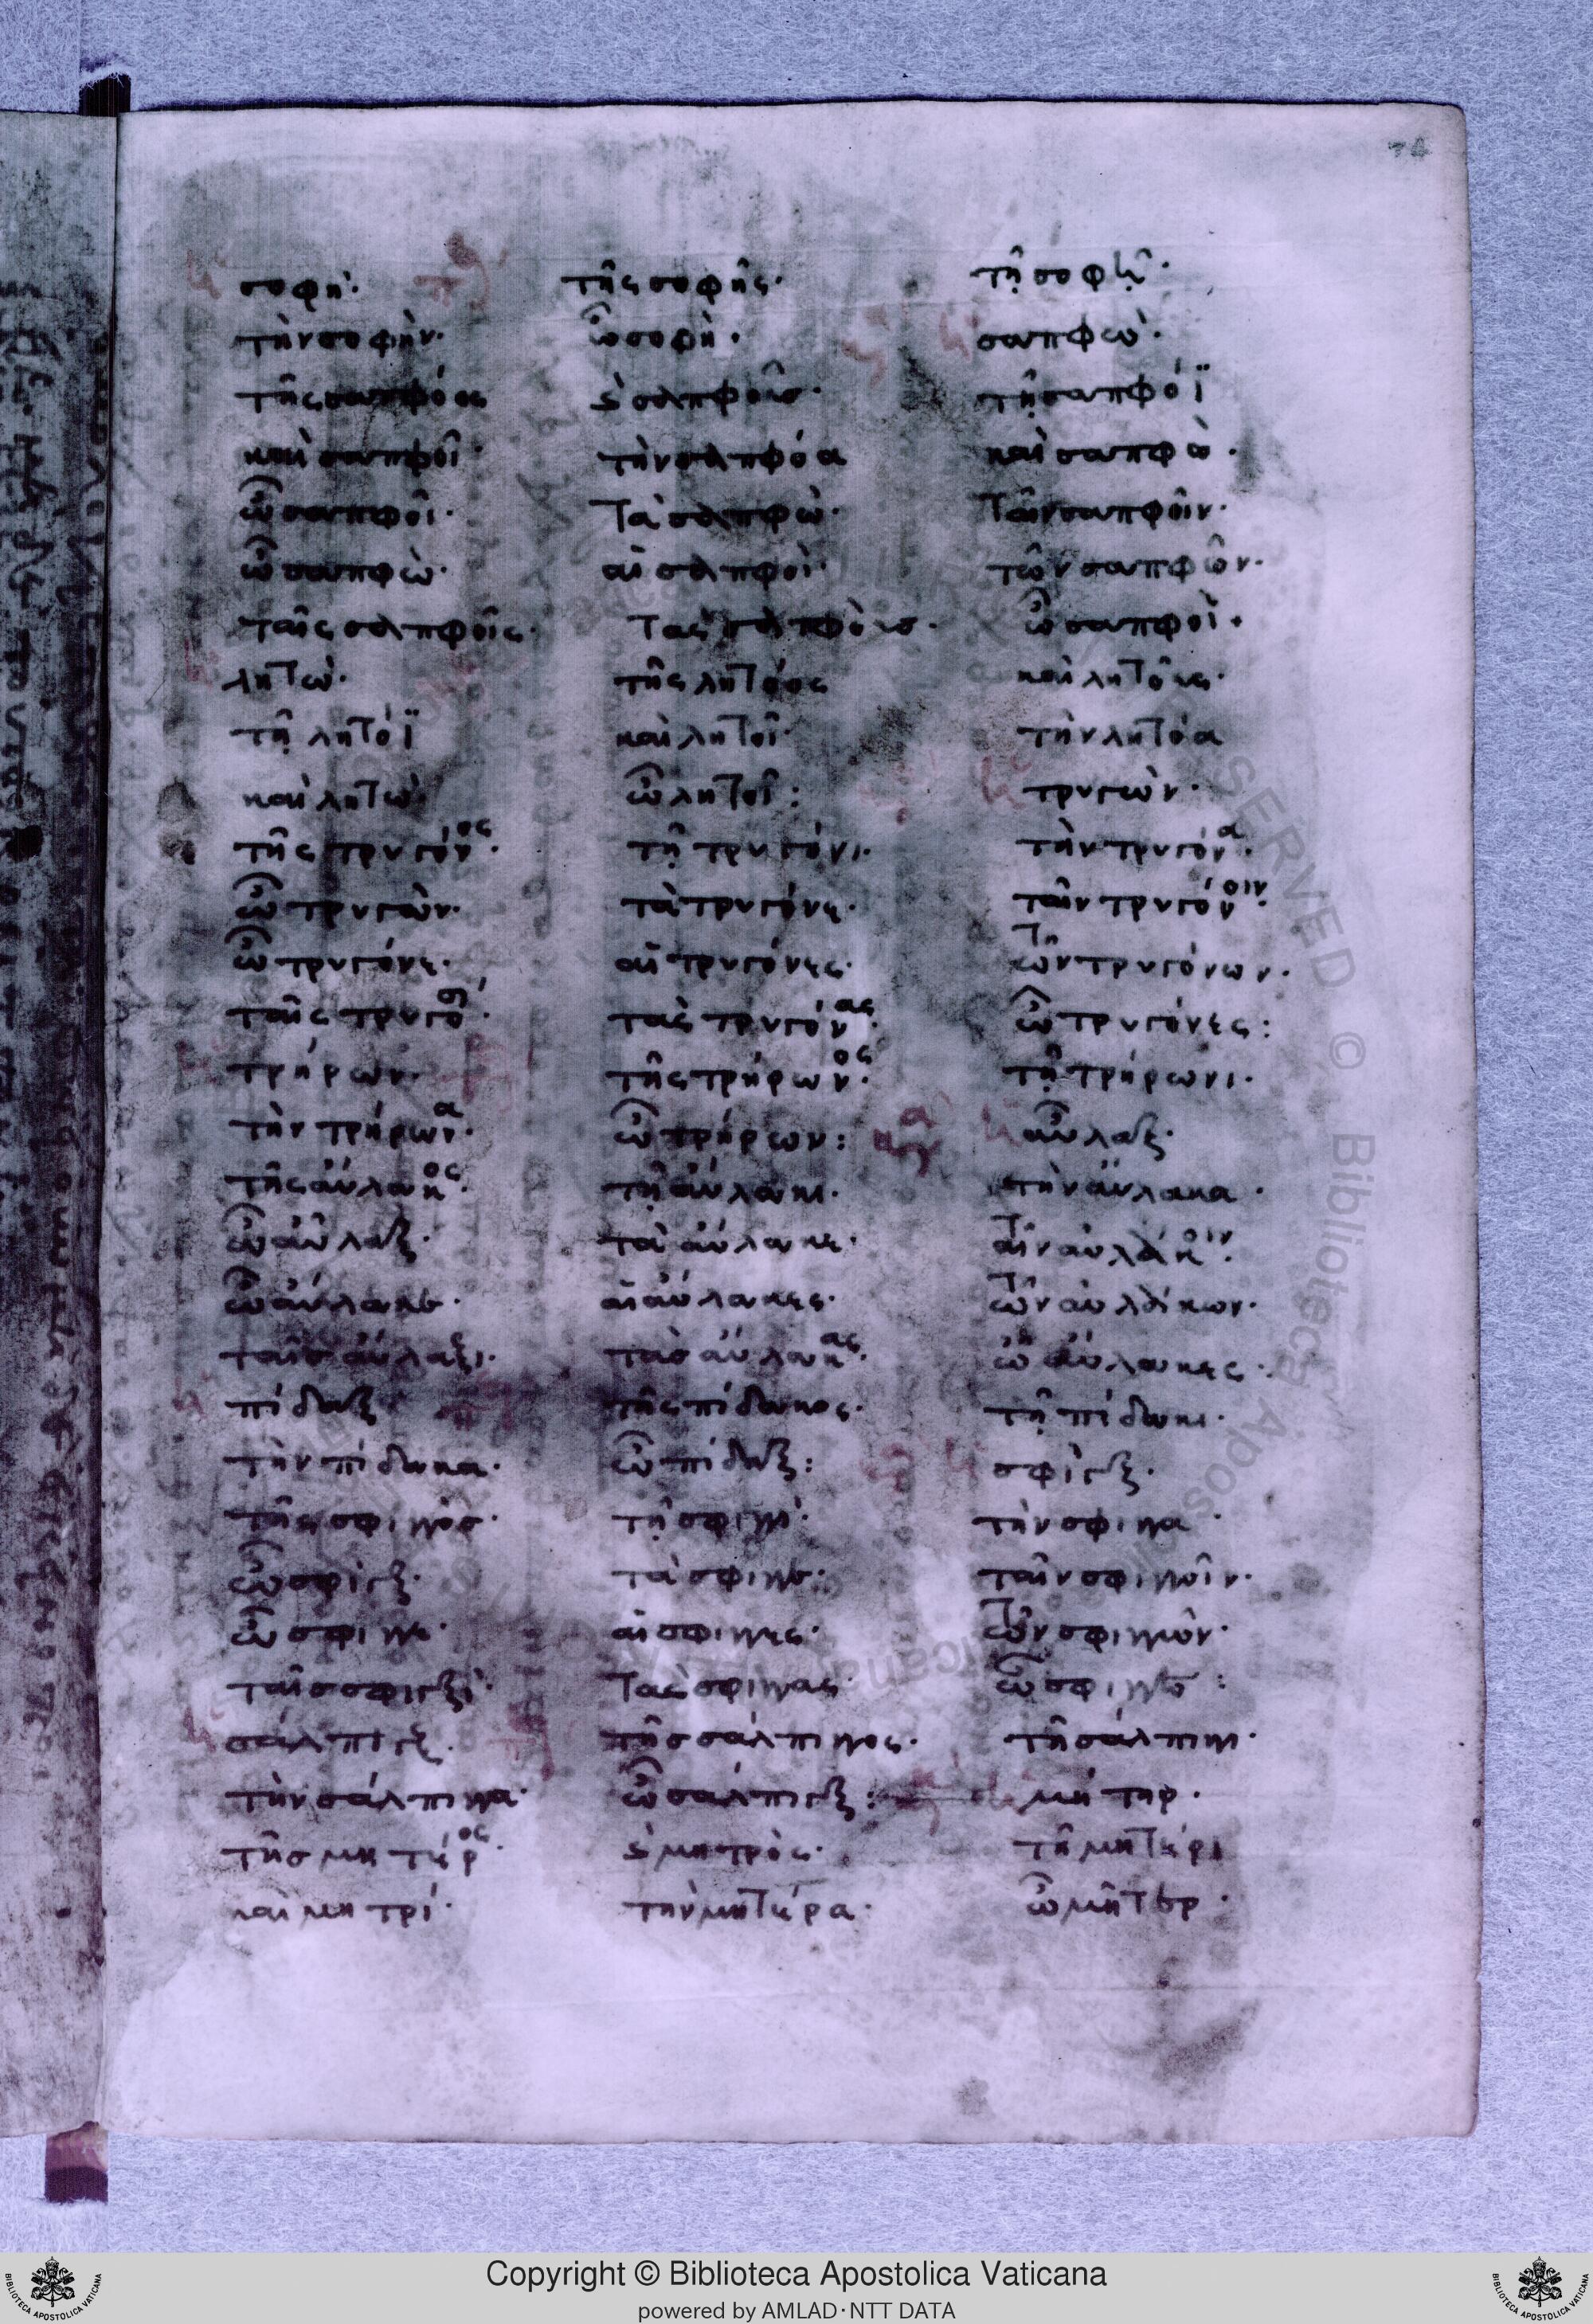 σοφή· τῆς σοφῆς· τῆ σοφῆ·
τὴν σοφήν· ὦ σοφή· σαπφώ·
τῆς σαπφόος σαπφοῦς· τῆ σαπφόϊ
καὶ σαπφοῖ· τὴν σαπφόα καὶ σαπφώ·
ὦ σαπφοῖ· τὰ σαπφώ· ταῖν σαπφοῖν·
ὦ σαπφώ· αἱ σαπφοί· τῶν σαπφῶν·
ταῖς σαπφοῖς· τὰς σαπφοὺς· ὦ σαπφοί·
λητώ· τῆς λητόος καὶ λητοῦς·
τῆ λητόϊ καὶ λητοῖ· τὴν λητόα
καὶ λητώ· ὦ λητοῖ: τρυγών·
τῆς τρυγόνος· τῆ τρυγόνι· τὴν τρυγόνα·
ὦ τρυγών· τὰ τρυγόνε· ταῖν τρυγόνοιν·
ὦ τρυγόνε· αἱ τρυγόνες· τῶν τρυγόνων·
ταῖς τρυγό· τὰς τρυγόνας· ὦ τρυγόνες:
τρήρων· τῆς τρήρωνος· τῆ τρήρωνι·
τὴν τρήρωνα· ὦ τρήρων: αὖλαξ·
τῆς αὔλακος· τῆ αὔλακι· τὴν αὔλακα·
ὦ αὖλαξ· τὰ αὔλακε· ταῖν αὐλάκοιν·
ὦ αὔλακε· αἱ αὔλακες· τῶν αὐλάκων·
ταῖς αὔλαξι· τὰς αὔλακας· ὦ αὔλακες·
πίδαξ· τῆς πίδακος· τῆ πίδακι·
τὴν πίδακα· ὦ πίδαξ: σφὶγξ·
τῆς σφιγγός· τῆ σφιγγί· τὴν σφίγγα·
ὦ σφὶγξ· τὰ σφίγγε· ταῖν σφιγγοῖν·
ὦ σφίγγε· αἱ σφίγγες· τῶν σφιγγῶν·
ταῖς σφιγξί· τὰς σφίγγας· ὦ σφίγγες:
σάλπιγξ· τῆς σάλπιγγος· τῆ σάλπιγγι·
τὴν σάλπιγγα· ὦ σάλπιγξ: μήτηρ·
τῆς μητέρος· μητρὸς· τῆ μητέρι
καὶ μητρί· τὴν μητέρα· ὦ μῆτερ·
Copyright © Biblioteca Apostolica Vaticana
powered by AMLAD·NTT DATA